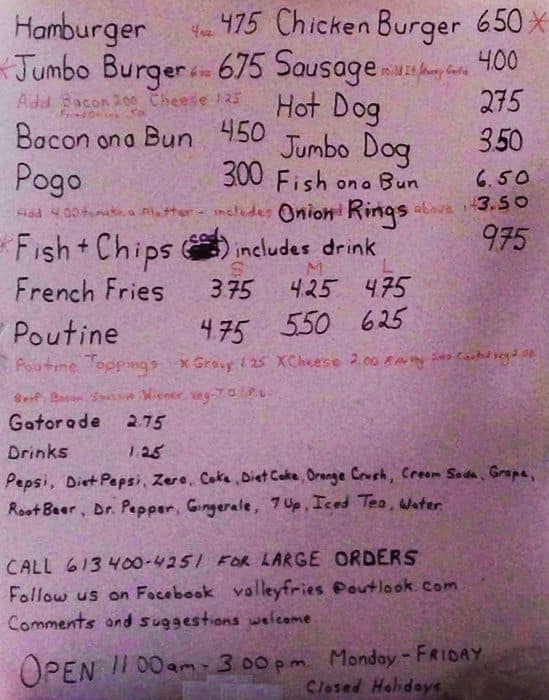 Hamburger 4oz 4.75 Chicken Burger 6.50 *
* Jumbo Burger 6oz 6.75 Sausage mild It/ 4.00
Add Bacon 2.00 Cheese 1.25
Hot Dog 2.75
Bacon on a Bun 4.50 Jumbo Dog 3.50
Pogo 3.00 Fish on a Bun 6.50
Add 4.00 to make a Platter - includes above
Onion Rings 3.50
* Fish + Chips (cod) includes drink 9.75
S M L
French Fries 3.75 4.25 4.75
Poutine 4.75 5.50 6.25
Poutine Toppings X Gravy 1.25 X Cheese 2.00
Beef, Bacon Sausage Wiener
Gatorade 2.75
Drinks 1.25
Pepsi, Diet Pepsi, Zero, Coke, Diet Coke, Orange Crush, Cream Soda, Grape,
Root Beer, Dr. Pepper, Gingerale, 7 Up, Iced Tea, Water
CALL 613 400-4251 FOR LARGE ORDERS
Follow us on Facebook valleyfries @outlook.com
Comments and suggestions welcome
OPEN 11 00am - 3 00 p.m. Monday - FRIDAY
Closed Holidays